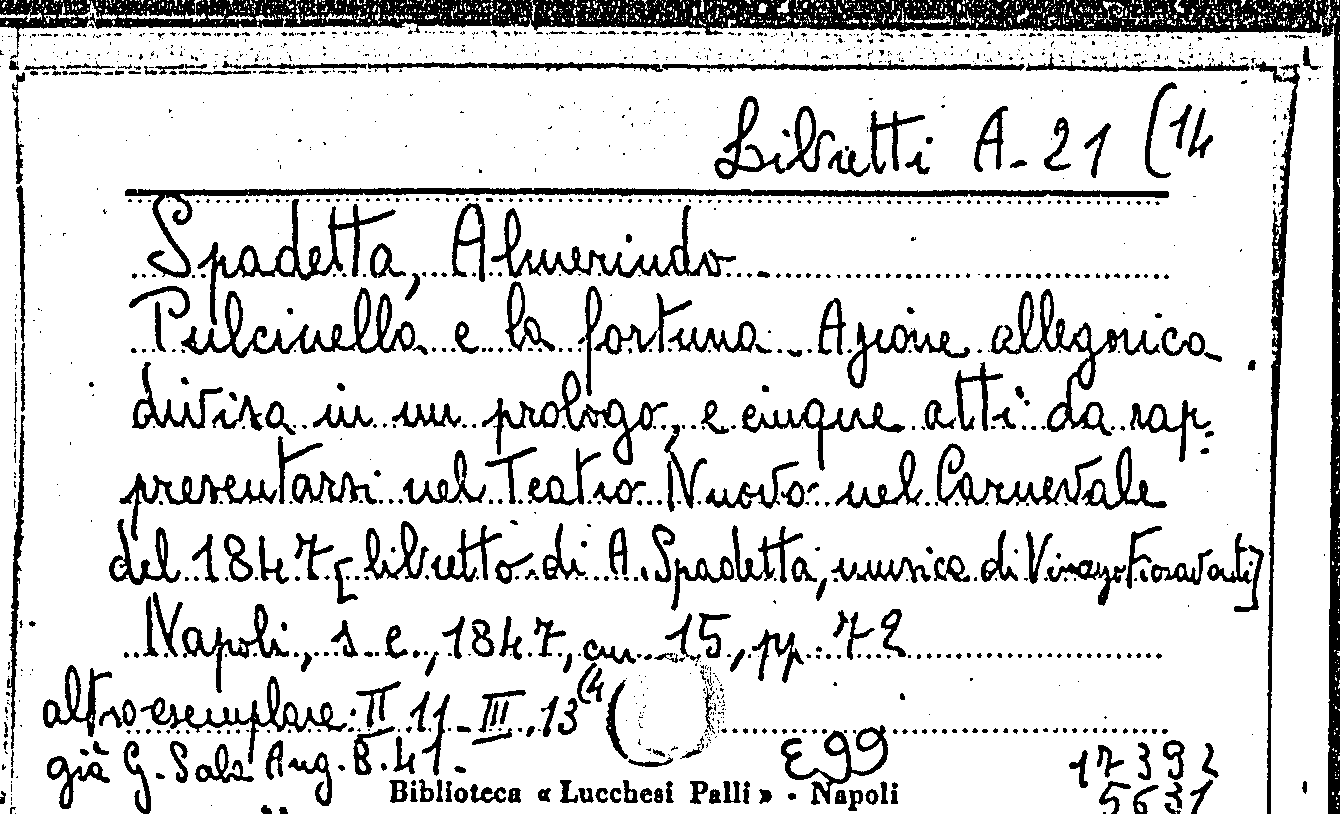 Libretti A-21 (14
Spadetta, Almerindo
Pulcinella e la fortuna - Azione allegorica
divisa in un prologo, e cinque atti da rap-
presentarsi nel Teatro Nuovo nel Carnevale
del 1847 [libretto di A. Spadetta, musica di Vincenzo Fioravanti]
Napoli, s. e., 1847, cm. 15, pp. 72
altro esemplare. II 11 - III. 13 (4 (
già G. Sala Aug. B. 41.
E99
Biblioteca « Lucchesi Palli » - Napoli
17392
5631